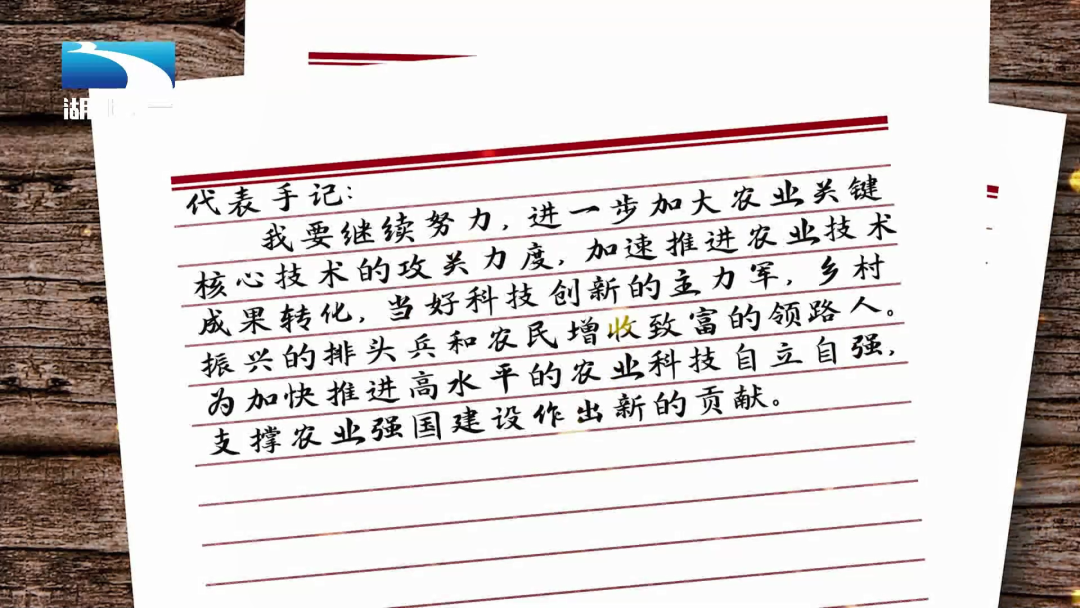 代表手记：
我要继续努力，进一步加大农业关键
核心技术的攻关力度，加速推进农业技术
成果转化，当好科技创新的主力军，乡村
振兴的排头兵和农民增收致富的领路人。
为加快推进高水平的农业科技自立自强，
支撑农业强国建设作出新的贡献。